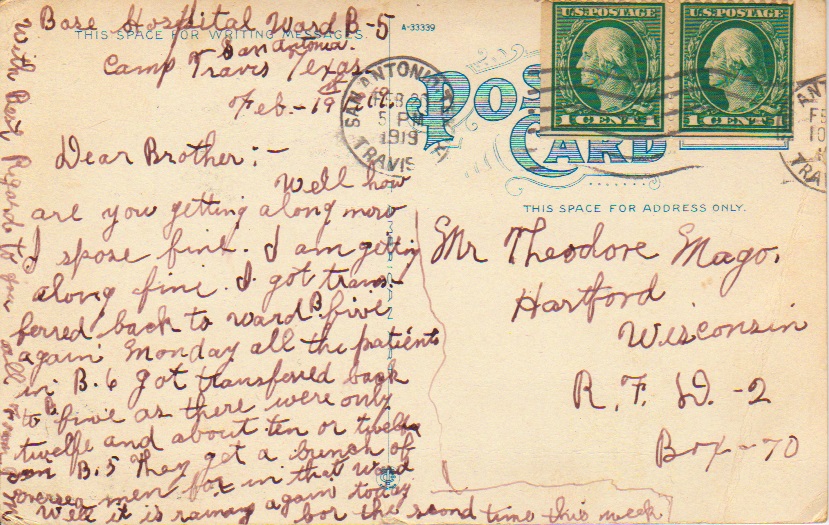 Base Hospital Ward B-5
THIS SPACE FOR WRITING MESSAGES.
A-33339
San Antonia.
Camp Travis Texas
Feb. - 19
Dear Brother: -
Well how
are you getting along now
I spose fine. I am getting
along fine. I got trans-
ferred back to ward B five
again Monday all the patients
in B.6 got transferred back
to five as there were only
twelfe and about ten or twelfe
in B.5 They get a bunch of
oversea men for in that ward
Well it is raining again today
for the second time this week
With Best Regards to you all from
U.S. POSTAGE
1 CENT 1
U.S. POSTAGE
1 CENT 1
SAN ANTONIO, TEX
FEB
5 PM
1919
TRAVIS
POST
CARD
THIS SPACE FOR ADDRESS ONLY.
Mr Theodore Mago.
Hartford
Wisconsin
R. F. D. -2
Box - 70